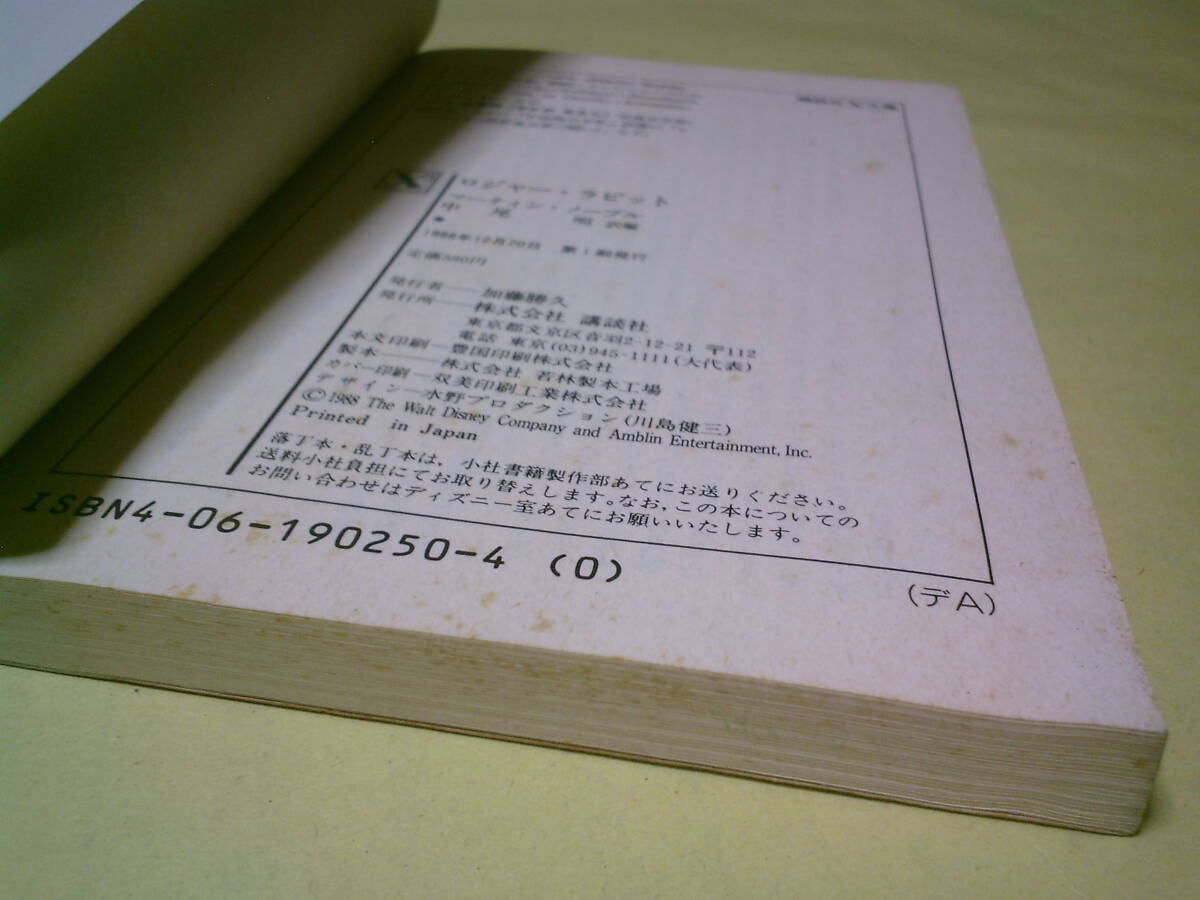 ロジャー・ラビット
マーティン・ノーブル
中尾 明 訳編
★
1988年12月20日 第1刷発行
定価380円
発行者——加藤勝久
発行所——株式会社 講談社
東京都文京区音羽2-12-21 〒112
電話 東京(03)945-1111(大代表)
本文印刷—豊国印刷株式会社
製本——株式会社 若林製本工場
カバー印刷—双美印刷工業株式会社
デザイン—水野プロダクション(川島健三)
©1988 The Walt Disney Company and Amblin Entertainment, Inc.
Printed in Japan
落丁本・乱丁本は,小社書籍製作部あてにお送りください。
送料小社負担にてお取り替えします。なお,この本についての
お問い合わせはディズニー室あてにお願いいたします。
ISBN4-06-190250-4 (0)
(デA)